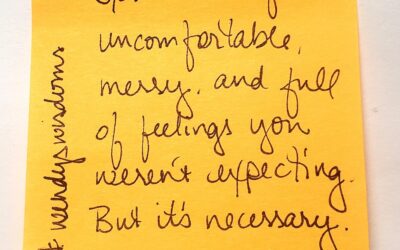 uncomfortable,
messy, and full
of feelings you
weren't expecting.
But it's necessary.
wendyswisdoms